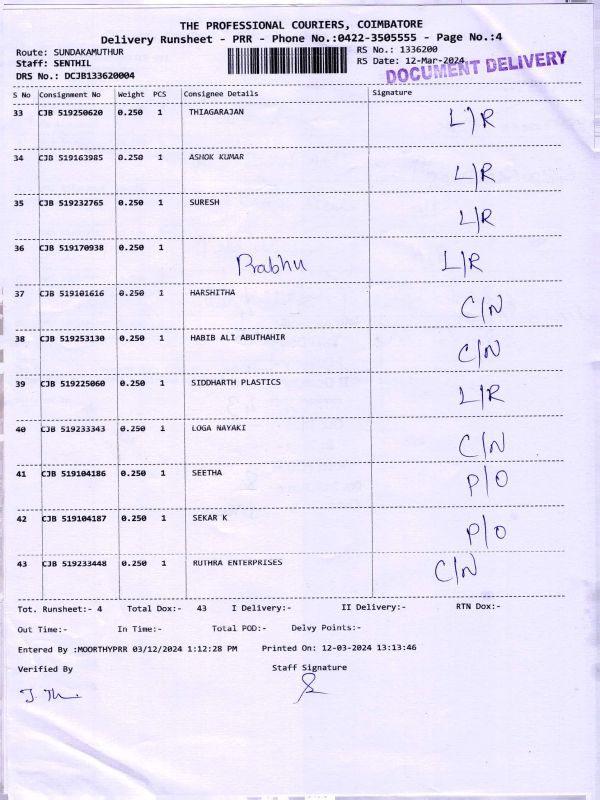 THE PROFESSIONAL COURIERS, COIMBATORE
Delivery Runsheet - PRR - Phone No.:0422-3505555 - Page No.:4
Route: SUNDAKAMUTHUR RS No.: 1336200
Staff: SENTHIL RS Date: 12-Mar-2024
DRS No.: DCJB133620004 DOCUMENT DELIVERY
S No Consignment No Weight PCS Consignee Details Signature
33 CJB 519250620 0.250 1 THIAGARAJAN L/R
34 CJB 519163985 0.250 1 ASHOK KUMAR L/R
35 CJB 519232765 0.250 1 SURESH L/R
36 CJB 519170938 0.250 1 Prabhu L/R
37 CJB 519101616 0.250 1 HARSHITHA C/N
38 CJB 519253130 0.250 1 HABIB ALI ABUTHAHIR C/N
39 CJB 519225060 0.250 1 SIDDHARTH PLASTICS L/R
40 CJB 519233343 0.250 1 LOGA NAYAKI C/N
41 CJB 519104186 0.250 1 SEETHA P/O
42 CJB 519104187 0.250 1 SEKAR K P/O
43 CJB 519233448 0.250 1 RUTHRA ENTERPRISES C/N
Tot. Runsheet:- 4 Total Dox:- 43 I Delivery:- II Delivery:- RTN Dox:-
Out Time:- In Time:- Total POD:- Delvy Points:-
Entered By :MOORTHYPRR 03/12/2024 1:12:28 PM Printed On: 12-03-2024 13:13:46
Verified By Staff Signature